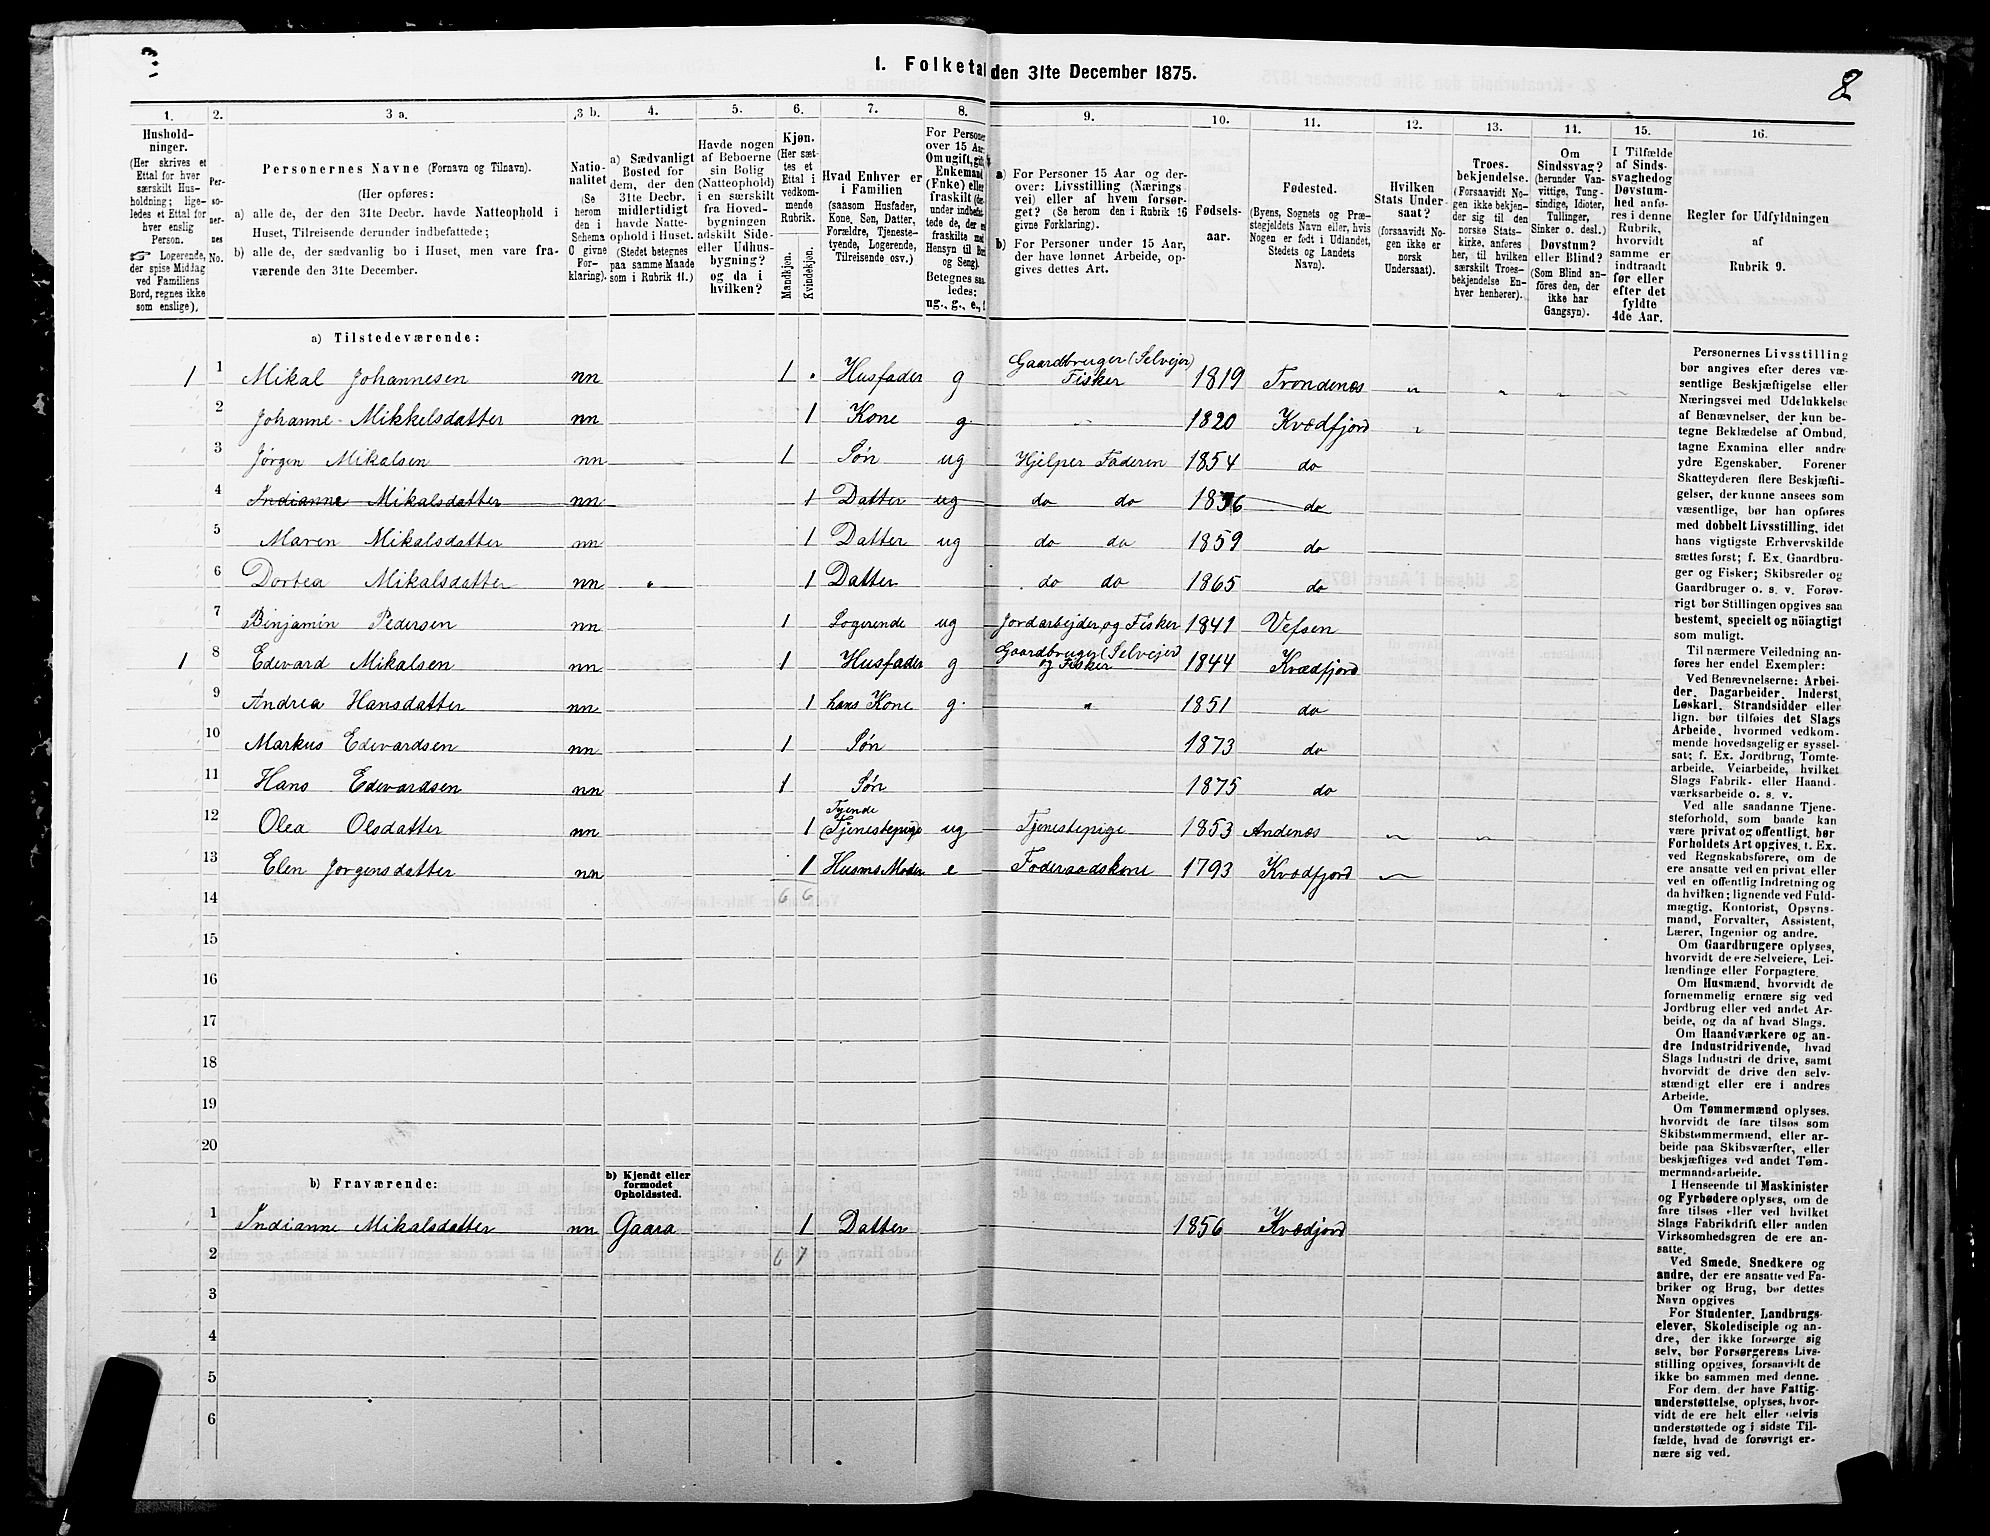 I. Folketal den 31te December 1875.
8
1. 2. 3 a. 3 b. 4. 5. 6. 7. 8. 9. 10. 11. 12. 13. 14. 15. 16.
Hushold-
ninger.
(Her skrives et
Ettal for hver
særskilt Hus-
holdning; lige-
ledes et Ettal for
hver enslig
Person.
☞ Logerende,
der spise Middag
ved Familiens
Bord, regnes ikke
som enslige).
Per-
so-
ner-
nes
No.
Personernes Navne (Fornavn og Tilnavn).
(Her opføres:
a) alle de, der den 31te Decbr. havde Natteophold i
Huset, Tilreisende derunder indbefattede;
b) alle de, der sædvanlig bo i Huset, men vare fra-
værende den 31te December.
Natio-
nalitet
(Se
herom
den i
Schema
O givne
For-
klaring).
a) Sædvanligt
Bosted for
dem, der den
31te Decbr.
midlertidigt
havde Natte-
ophold i Huset.
(Stedet betegnes
paa samme Maade
som i Rubrik 11.)
Havde nogen
af Beboerne
sin Bolig
(Natteophold)
i en særskilt
fra Hoved-
bygningen
adskilt Side-
eller Udhus-
bygning?
og da i
hvilken?
Kjøn.
(Her sæt-
tes et
Ettal i
vedkom-
mende
Rubrik.
Mandkjøn.
Kvindekjøn.
Hvad Enhver er
i Familien
(saasom Husfader,
Kone, Søn, Datter,
Forældre, Tjeneste-
tyende, Logerende,
Tilreisende osv.)
For Personer
over 15 Aar:
Om ugift, gift,
Enkemand
(Enke) eller
fraskilt
Betegnes saa-
ledes:
ug., g., e.,
a) For Personer 15 Aar og der-
over: Livsstilling (Nærings-
vei) eller af hvem forsør-
get? (Se herom den i Rubrik 16
givne Forklaring).
b) For Personer under 15 Aar,
der have lønnet Arbeide, op-
gives dettes Art.
Fødsels-
aar.
Fødested.
(Byens, Sognets og Præ-
stegjeldets Navn eller, hvis
Nogen er født i Udlandet,
Stedets og Landets
Navn).
Hvilken
Stats Under-
saat?
(forsaavidt No-
gen ikke er
norsk
Undersaat).
Troes-
bekjendelse.
(Forsaavidt No-
gen ikke bekjen-
der sig til den
norske Stats-
kirke, anføres
her, til hvilken
særskilt Troes-
bekjendelse En-
hver henhører).
Om
Sindssvag?
(herunder Van-
vittige, Tung-
sindige, Idioter,
Tullinger,
Sinker o. desl.)
Døvstum?
eller Blind?
(Som Blind an-
føres den, der
ikke har
Gangsyn).
I Tilfælde
af Sinds-
svaghed og
Døvstum-
hed anfø-
res i denne
Rubrik,
hvorvidt
samme er
indtraadt
før eller
efter det
fyldte
4de Aar.
Regler for Udfyldningen
af
Rubrik 9.
a) Tilstedeværende:
1 1 Mikal Johannesen nn 1 Husfader g Gaardbruger (Selvejer) Fisker 1819 Trondenæs
2 Johanne Mikkelsdatter nn 1 Kone g. 1820 Kvædfjord
3 Jørgen Mikalsen nn 1 Søn ug Hjelper Faderen 1854 do
4 Indianne Mikalsdatter nn 1 Datter ug do do 1856 do
5 Maren Mikalsdatter nn 1 Datter ug do do 1859 do
6 Dortea Mikalsdatter nn 1 Datter do do 1865 do
7 Binjamin Pedersen nn 1 Logerende ug Jordarbejder og Fisker 1841 Vefsen
1 8 Edevard Mikalsen nn 1 Husfader g Gaardbruger (Selvejer) og Fisker 1844 Kvædfjord
9 Andrea Hansdatter nn 1 hans Kone g. " 1851 do
10 Markus Edevardsen nn 1 Søn 1873 do
11 Hans Edevardsen nn 1 Søn 1875 do
12 Olea Olsdatter nn 1 Tyende (Tjenestepige ug Tjenestepige 1853 Andenæs
13 Elen Jørgensdatter nn 1 Husms Moder e Føderaadskone 1793 Kvædfjord
14 6 6
15
16
17
18
19
20
b) Fraværende:
b) Kjendt eller
formodet
Opholdssted.
1 Indianne Mikalsdatter nn Gaara 1 Datter 1856 Kvædjord
2 6 7
3
4
5
6
Personernes Livsstilling
bør angives efter deres væ-
sentlige Beskjæftigelse eller
Næringsvei med Udelukkelse
af Benævnelser, der kun be-
tegne Beklædelse af Ombud,
tagne Examina eller andre
ydre Egenskaber. Forener
Skatteyderen flere Beskjæfti-
gelser, der kunne ansees som
væsentlige, bør han opføres
med dobbelt Livsstilling, idet
hans vigtigste Erhvervskilde
sættes først; f. Ex. Gaardbru-
ger og Fisker; Skibsreder og
Gaardbruger o. s. v. Forøv-
rigt bør Stillingen opgives saa
bestemt, specielt og nøiagtigt
som muligt.
Til nærmere Veiledning an-
føres her endel Exempler:
Ved Benævnelserne: Arbei-
der, Dagarbeider, Inderst,
Løskarl, Strandsidder eller
lign. bør tilføies det Slags
Arbeide, hvormed vedkom-
mende hovedsagelig er syssel-
sat; f. Ex. Jordbrug, Tomte-
arbeide, Veiarbeide, hvilket
Slags Fabrik- eller Haand-
værksarbeide o. s. v.
Ved alle saadanne Tjene-
steforhold, som baade kan
være privat og offentligt, bør
Forholdets Art opgives, f. Ex.
ved Regnskabsførere, om de
ere ansatte ved en privat eller
ved en offentlig Indretning og
da hvilken; lignende ved Fuld-
mægtig, Kontorist, Opsyns-
mand, Forvalter, Assistent,
Lærer, Ingeniør og andre.
Om Gaardbrugere oplyses,
hvorvidt de ere Selveiere, Lei-
lændinge eller Forpagtere.
Om Husmænd, hvorvidt de
fornemmelig ernære sig ved
Jordbrug eller ved andet Ar-
beide, og da af hvad Slags.
Om Haandværkere og an-
dre Industridrivende, hvad
Slags Industri de drive, samt
hvorvidt de drive den selv-
stændigt eller ere i andres
Arbeide.
Om Tømmermænd oplyses,
hvorvidt de fare tilsøs som
Skibstømmermænd, eller ar-
beide paa Skibsværfter, eller
beskjæftiges ved andet Tøm-
mermandsarbeide.
I Henseende til Maskinister
og Fyrbødere oplyses, om de
fare tilsøs eller ved hvilket
Slags Fabrikdrift eller anden
Virksomhedsgren de ere an-
satte.
Ved Smede, Snedkere og
andre, der ere ansatte ved Fa-
briker og Brug, bør dettes
Navn opgives
For Studenter, Landbrugs-
elever, Skoledisciple og an-
dre, der ikke forsørge sig
selv, bør Forsørgerens Livs-
stilling opgives, forsaavidt de
ikke bo sammen med denne.
For dem, der have Fattig-
understøttelse, oplyses, hvor-
vidt de ere helt eller delvis
understøttede og i sidste Til-
fælde, hvad de forøvrigt er-
nære sig ved.